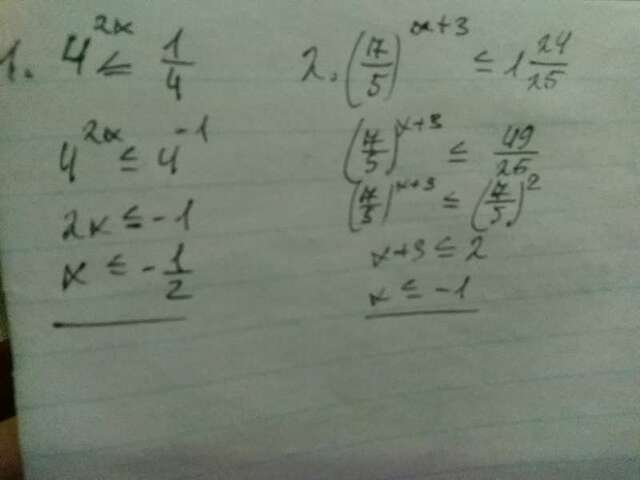 1. 4^{2x} ≤ \frac{1}{4}
4^{2x} ≤ 4^{-1}
2x ≤ -1
x ≤ -\frac{1}{2}
2. (\frac{7}{5})^{x+3} ≤ 1\frac{24}{25}
(\frac{7}{5})^{x+3} ≤ \frac{49}{25}
(\frac{7}{5})^{x+3} ≤ (\frac{7}{5})^2
x+3 ≤ 2
x ≤ -1